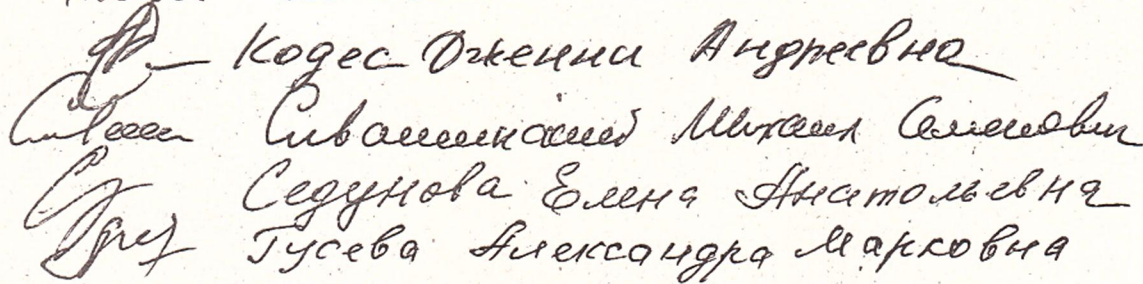 Кодес Дженни Андреевна
Сивашинский Михаил Семенович
Седунова Елена Анатольевна
Гусева Александра Марковна